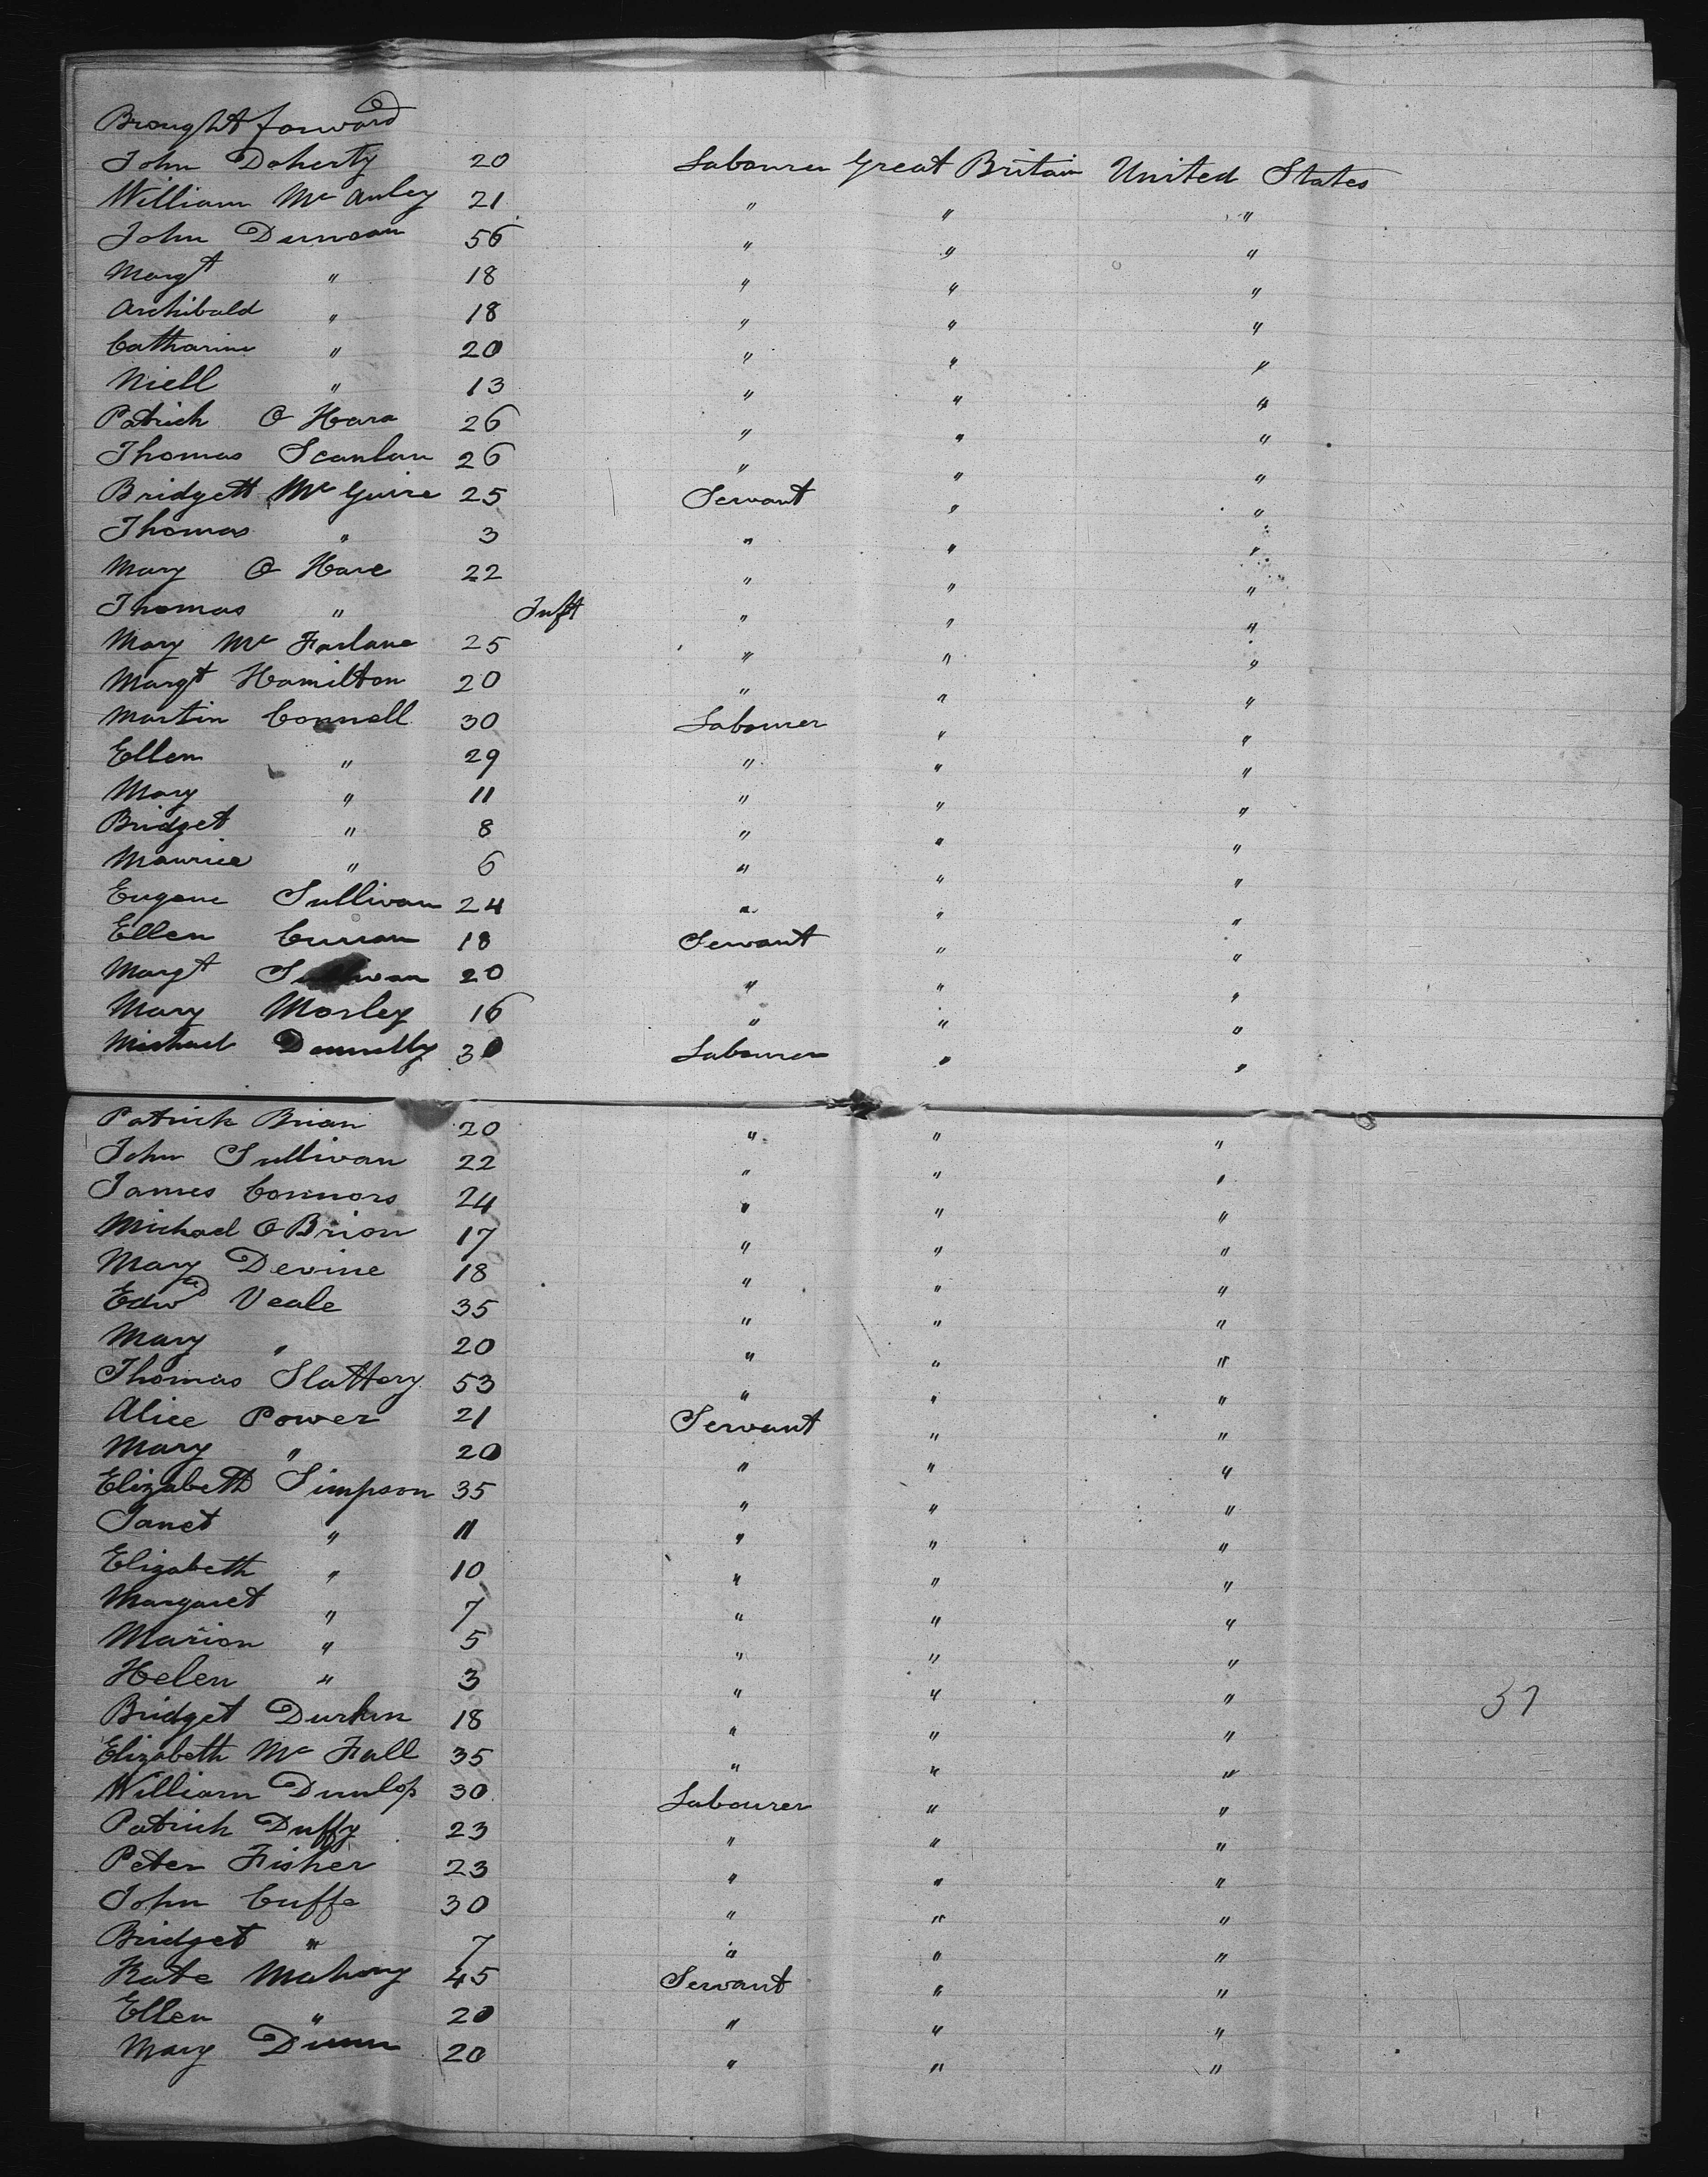 Brought forward
John Doherty 20 Labourer Great Britain United States
William Mc Auley 21 " " "
John Duncan 56 " " "
Margt " 18 " " "
Archibald " 18 " " "
Catharine " 20 " " "
Niell " 13 " " "
Patrick O Hara 26 " " "
Thomas Scanlan 26 " " "
Bridgett Mc Guire 25 Servant " "
Thomas " 3 " " "
Mary O Hare 22 " " "
Thomas " Inft " " "
Mary Mc Farlane 25 " " "
Margt Hamilton 20 " " "
Martin Connell 30 Labourer " "
Ellen " 29 " " "
Mary " 11 " " "
Bridget " 8 " " "
Maurice " 6 " " "
Eugene Sullivan 24 " " "
Ellen Curran 18 Servant " "
Margt Sullivan 20 " " "
Mary Morley 16 " " "
Michael Donnelly 30 Labourer " "
Patrick Brian 20 " " "
John Sullivan 22 " " "
James Connors 24 " " "
Michael O Brion 17 " " "
Mary Devine 18 " " "
Edwd Veale 35 " " "
Mary " 20 " " "
Thomas Slattery 53 " " "
Alice Power 21 Servant " "
Mary " 20 " " "
Elizabeth Simpson 35 " " "
Janet " 11 " " "
Elizabeth " 10 " " "
Margaret " 7 " " "
Marion " 5 " " "
Helen " 3 " " "
37
Bridget Durkin 18 " " "
Elizabeth Mc Fall 35 " " "
William Dunlop 30 Labourer " "
Patrick Duffy 23 " " "
Peter Fisher 23 " " "
John Cuffe 30 " " "
Bridget " 7 " " "
Kate Mahony 45 Servant " "
Ellen " 20 " " "
Mary Dunn 20 " " "